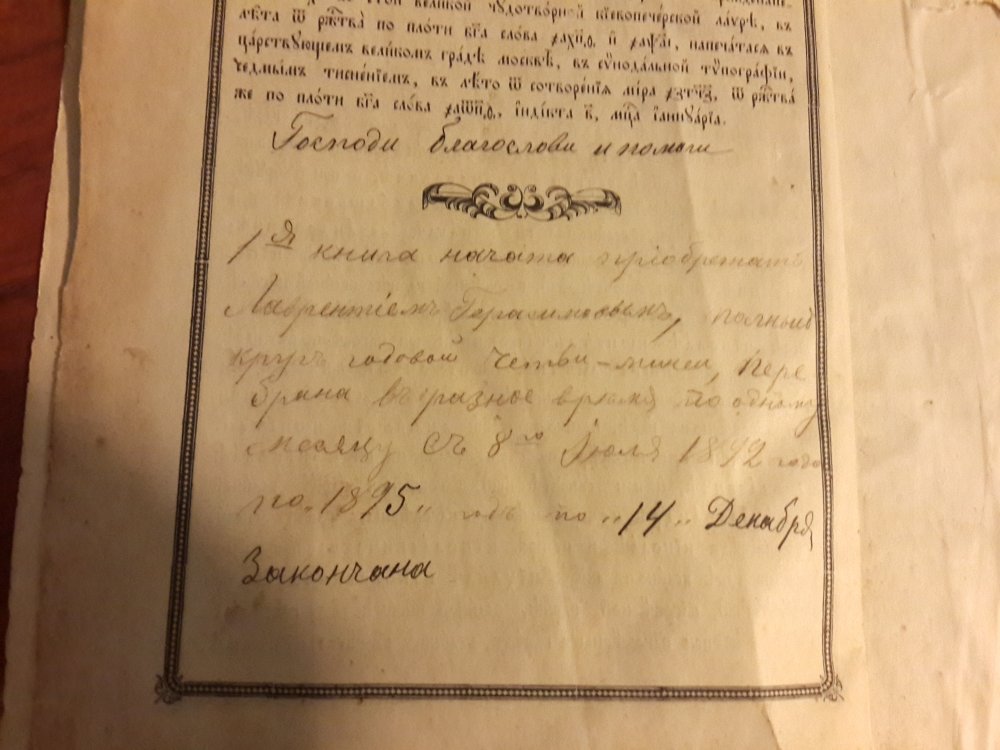 стой великой чудотворной кіевопечерской лаврѣ, въ
лѣта ѿ ржⷭ҇тва по плоти бг҃а слова ҂ахп҃ѳ, и ҂аѱ҃аі, напечатася въ
царствующемъ великомъ градѣ москвѣ, въ сѵнодальной тѵпографіи,
седмымъ тисненіемъ, въ лѣто ѿ сотворенія міра ҂зтч҃з, ѿ ржⷭ҇тва
же по плоти бг҃а слова ҂аѡп҃ѳ, індікта в҃, мцⷭ҇а іаннуарїа.
Господи благослови и помоги
1ᵃя книга начата пріобретать
Лаврентіемъ Герасимовымъ, полный
кругъ годовой четьи-минеи, пере
брана въ разное время по одному
месяцу съ 8го Іюля 1892 года
по "1895" годъ по "14" Декабря
Закончана